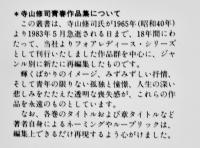 ＊寺山修司青春作品集について
この叢書は、寺山修司氏が1965年(昭和40年)
より1983年5月急逝される日まで、18年間に
わたって、当社よりフォアレディース・シリーズ
として刊行いたしました作品群を中心に、ジャン
ル別に新たに再編集したものです。
輝くばかりのイメージ、みずみずしい抒情、
そして青年の限りない孤独と憧憬、人生の深い
悲しみをたたえた透明な喪失感が、これらの作
品を永遠のものとしています。
なお、各巻のタイトルおよび章タイトルなど
著者自身によるネーミングやルーブリックは、
編集上できるだけ再現するよう心がけました。